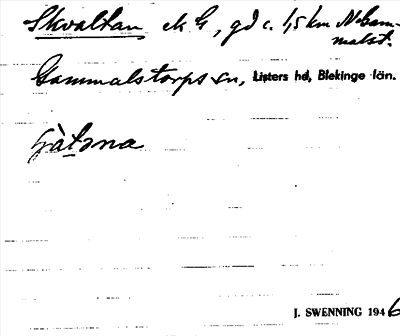 Skvaltan ek G, gd c. 1,5 km N Gam-
malst.
Gammalstorps sn, Listers hd, Blekinge län.
J. SWENNING 1946